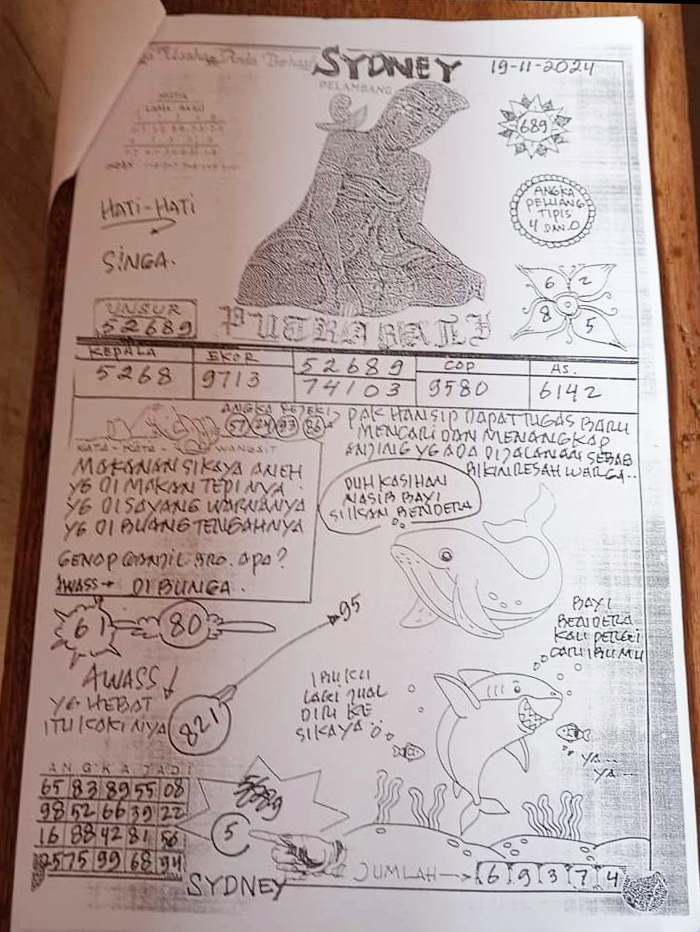 SYDNEY
19-11-2024
PELAMBANG
689
HATI-HATI
SINGA.
ANGKA
PELUANG
TIPIS
4 DAN 0
6 2
8 5
UNSUR
52689
PUTRA BALI
KEPALA
5268
EKOR
9713
52689
74103
COP
9580
AS.
6142
ANGKA REJEKI
57 24 93 86
KATA-KATA WANGSIT
MAKANAN SI KAYA ANEH
YG DI MAKAN TEPI NYA
YG DI SAYANG WARNANYA
YG DI BUANG TENGAHNYA
GENAP GANJIL BRO. APA?
AWASS→ DI BUNGA.
PAK HANSIP DAPAT TUGAS BARU
MENCARI DAN MENANGKAP
ANJING YG ADA DIJALANAN SEBAB
BIKIN RESAH WARGA..
DUH KASIHAN
NASIB BAYI
SI IKAN BENDERA
61 80
95
AWASS!
YG HEBAT
ITU KAKI NYA
821
BAYI
BENDERA
KAU PERGI
CARI IBUMU
IBUKU
LAGI JUAL
DIRI KE
SIKAYA
YA...
YA...
ANGKA JADI
65 83 89 55 08
98 52 66 39 22
16 88 42 81 56
25 75 99 68 94
5
SYDNEY
JUMLAH→ 6 9 3 7 4